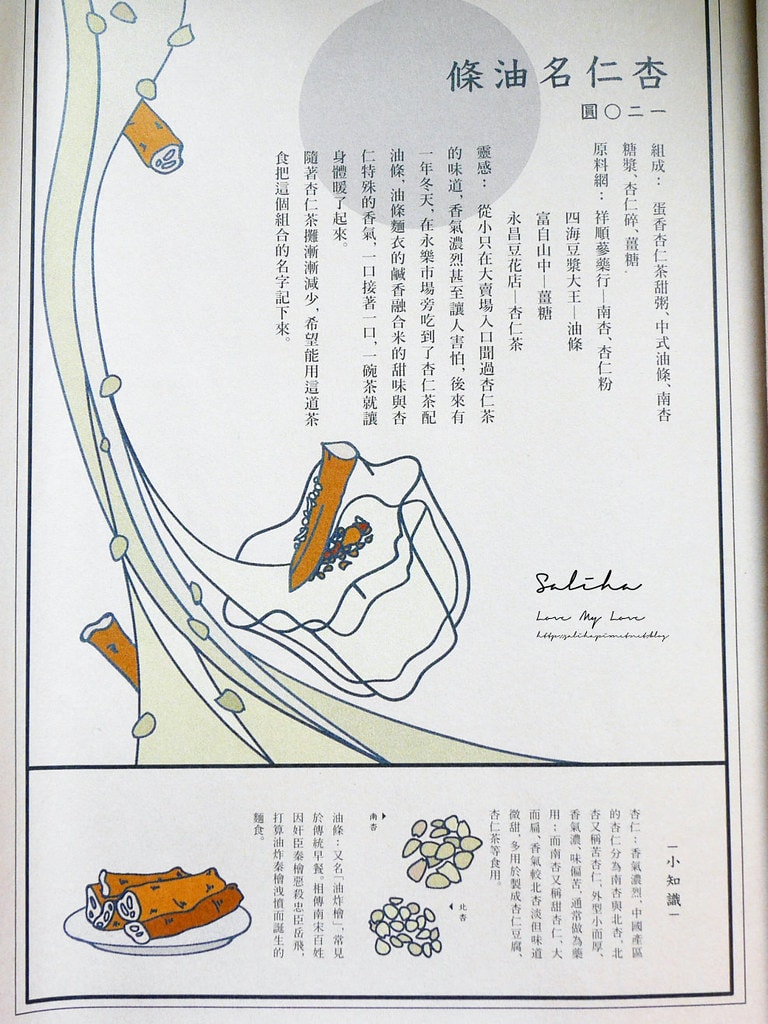 杏仁名油條
一二〇圓
組成：蛋香杏仁茶甜粥、中式油條、南杏
糖漿、杏仁碎、薑糖
原料網：祥順蔘藥行—南杏、杏仁粉
四海豆漿大王—油條
富自山中—薑糖
永昌豆花店—杏仁茶
靈感：從小只在大賣場入口聞過杏仁茶
的味道，香氣濃烈甚至讓人害怕，後來有
一年冬天，在永樂市場旁吃到了杏仁茶配
油條，油條麵衣的鹹香融合米的甜味與杏
仁特殊的香氣，一口接著一口，一碗茶就讓
身體暖了起來。
隨著杏仁茶攤漸漸減少，希望能用這道茶
食把這個組合的名字記下來。
Saliha
Love My Love
—小知識—
杏仁：香氣濃烈，中國產區
的杏仁分為南杏與北杏。北
杏又稱苦杏仁，外型小而厚、
香氣濃、味偏苦，通常做為藥
用；而南杏又稱甜杏仁，大
而扁、香氣較北杏淡但味道
微甜，多用於製成杏仁豆腐、
杏仁茶等食用。
南杏
北杏
油條：又名「油炸檜」，常見
於傳統早餐。相傳南宋百姓
因奸臣秦檜惡殺忠臣岳飛，
打算油炸秦檜洩憤而誕生的
麵食。